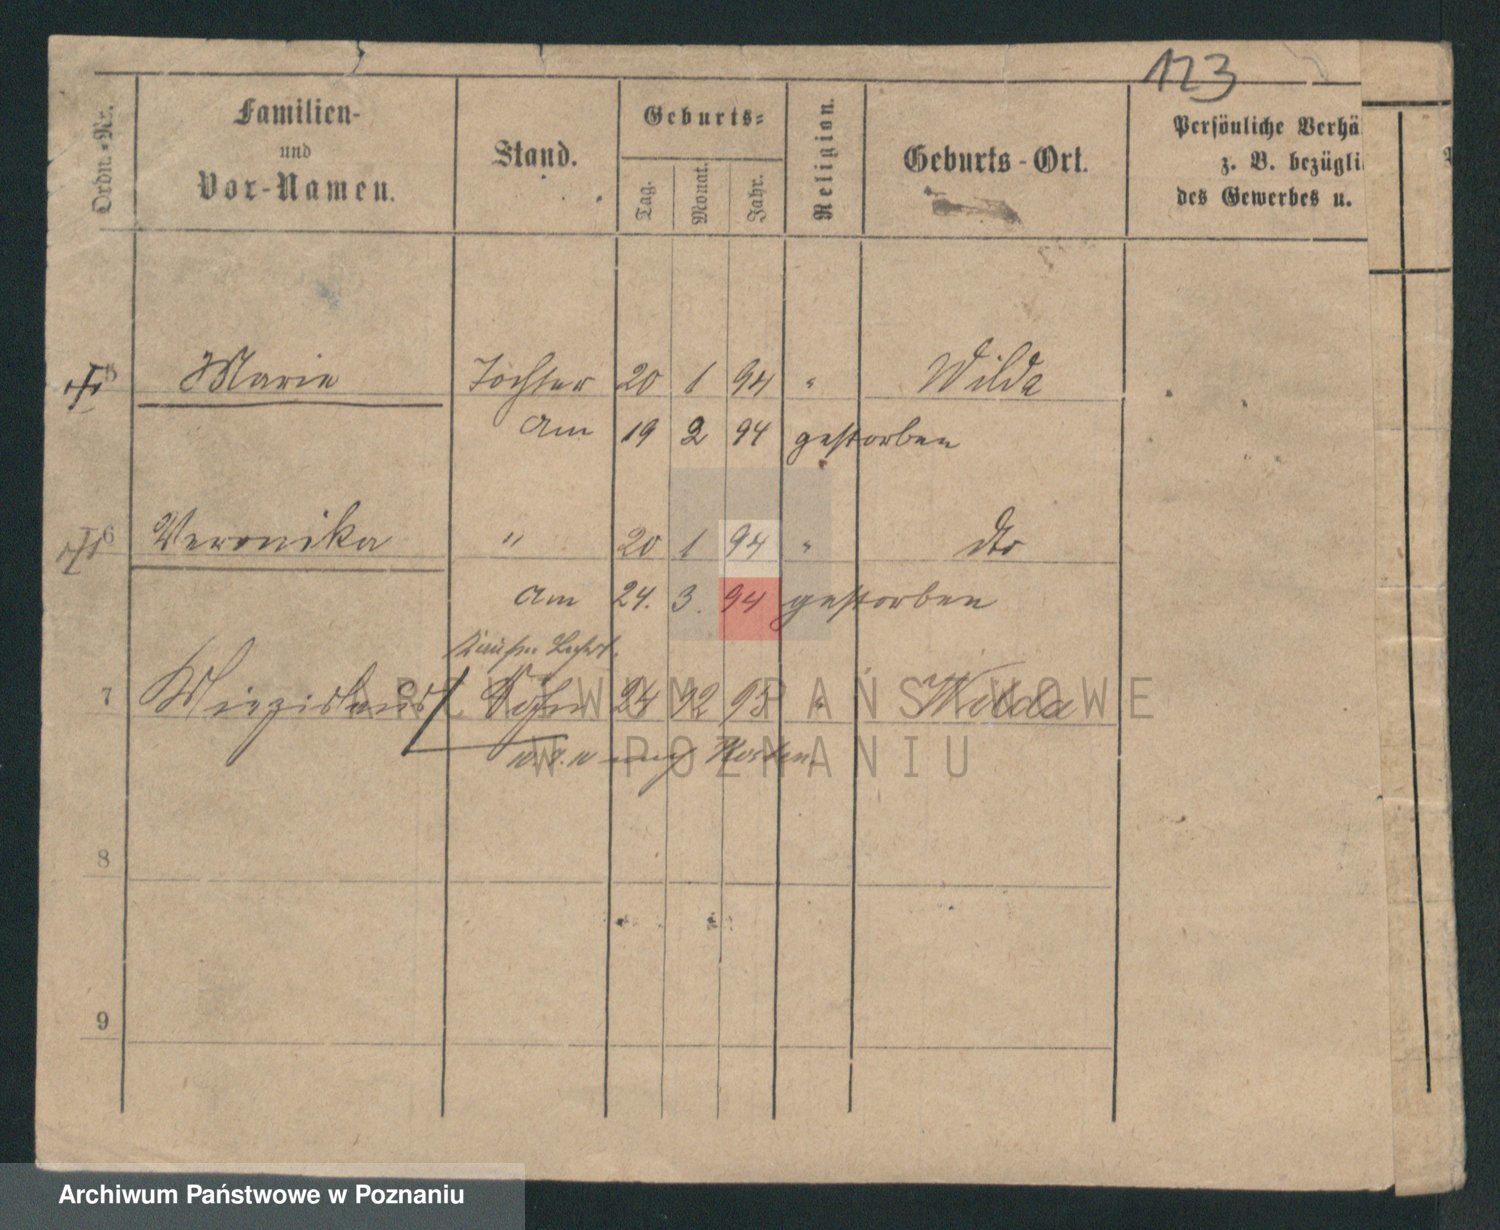 123
Ordn.-Nr.
Familien-
und
Vor-Namen.
Stand.
Geburts-
Tag.
Monat.
Jahr.
Religion.
Geburts-Ort.
Persönliche Verhä
z. B. bezügli
des Gewerbes u.
5 Marie Tochter 20 1 94 " Wilda
am 19 2 94 gestorben
6 Veronika " 20 1 94 " dto
am 24. 3. 94 gestorben
7 Miezislaus Sohn 25 12 95 " Wilda
8
9
ARCHIWUM PAŃSTWOWE
W POZNANIU
Archiwum Państwowe w Poznaniu